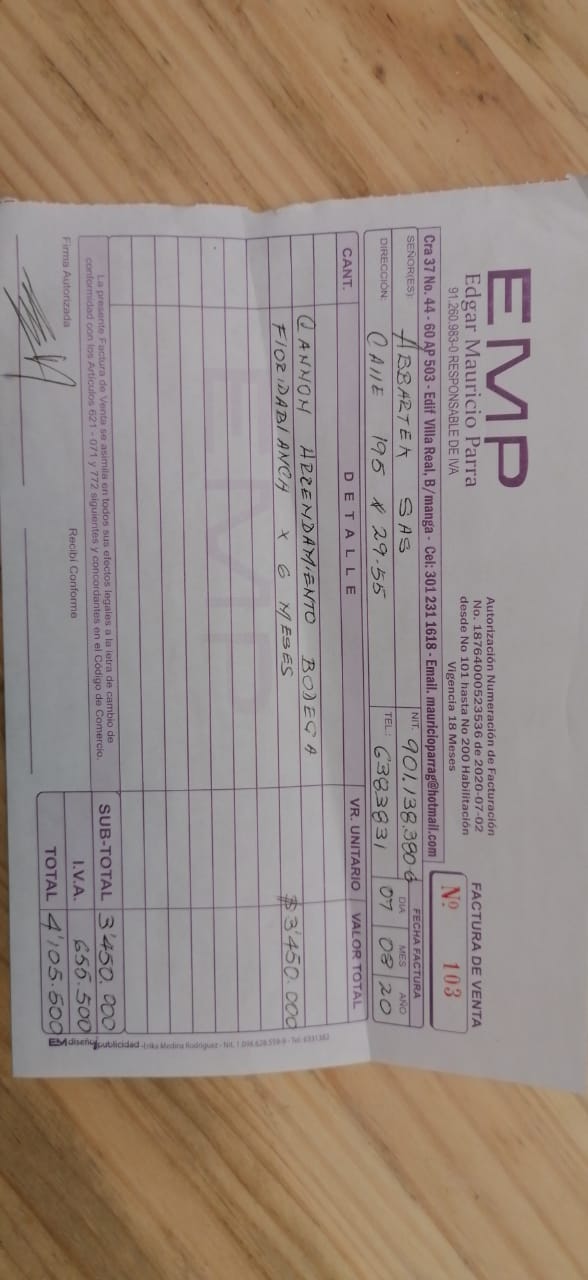 EMP
Edgar Mauricio Parra
91.260.983-0 RESPONSABLE DE IVA
Autorización Numeración de Facturación
No. 18764000523536 de 2020-07-02
desde No 101 hasta No 200 Habilitación
Vigencia 18 Meses
FACTURA DE VENTA
Nº 103
Cra 37 No. 44 - 60 AP 503 - Edif Villa Real, B/manga - Cel: 301 231 1618 - Email. mauricioparrag@hotmail.com
SEÑOR(ES): ABBARTEK SAS
NIT. 901.138.380-6
DIRECCIÓN: CAllE 195 # 29-55
TEL.: 6383831
FECHA FACTURA
DIA MES AÑO
07 08 20
CANT. DETALLE VR. UNITARIO VALOR TOTAL
CANNON ARRENDAMIENTO BODEGA
FlORIDABlANCA x 6 MESES $3'450.000
EMP
La presente Factura de Venta se asimila en todos sus efectos legales a la letra de cambio de
conformidad con los Artículos 621 - 071 y 772 siguientes y concordantes en el Código de Comercio.
SUB-TOTAL 3'450.000
I.V.A. 655.500
TOTAL 4'105.500
Firma Autorizada
Recibí Conforme